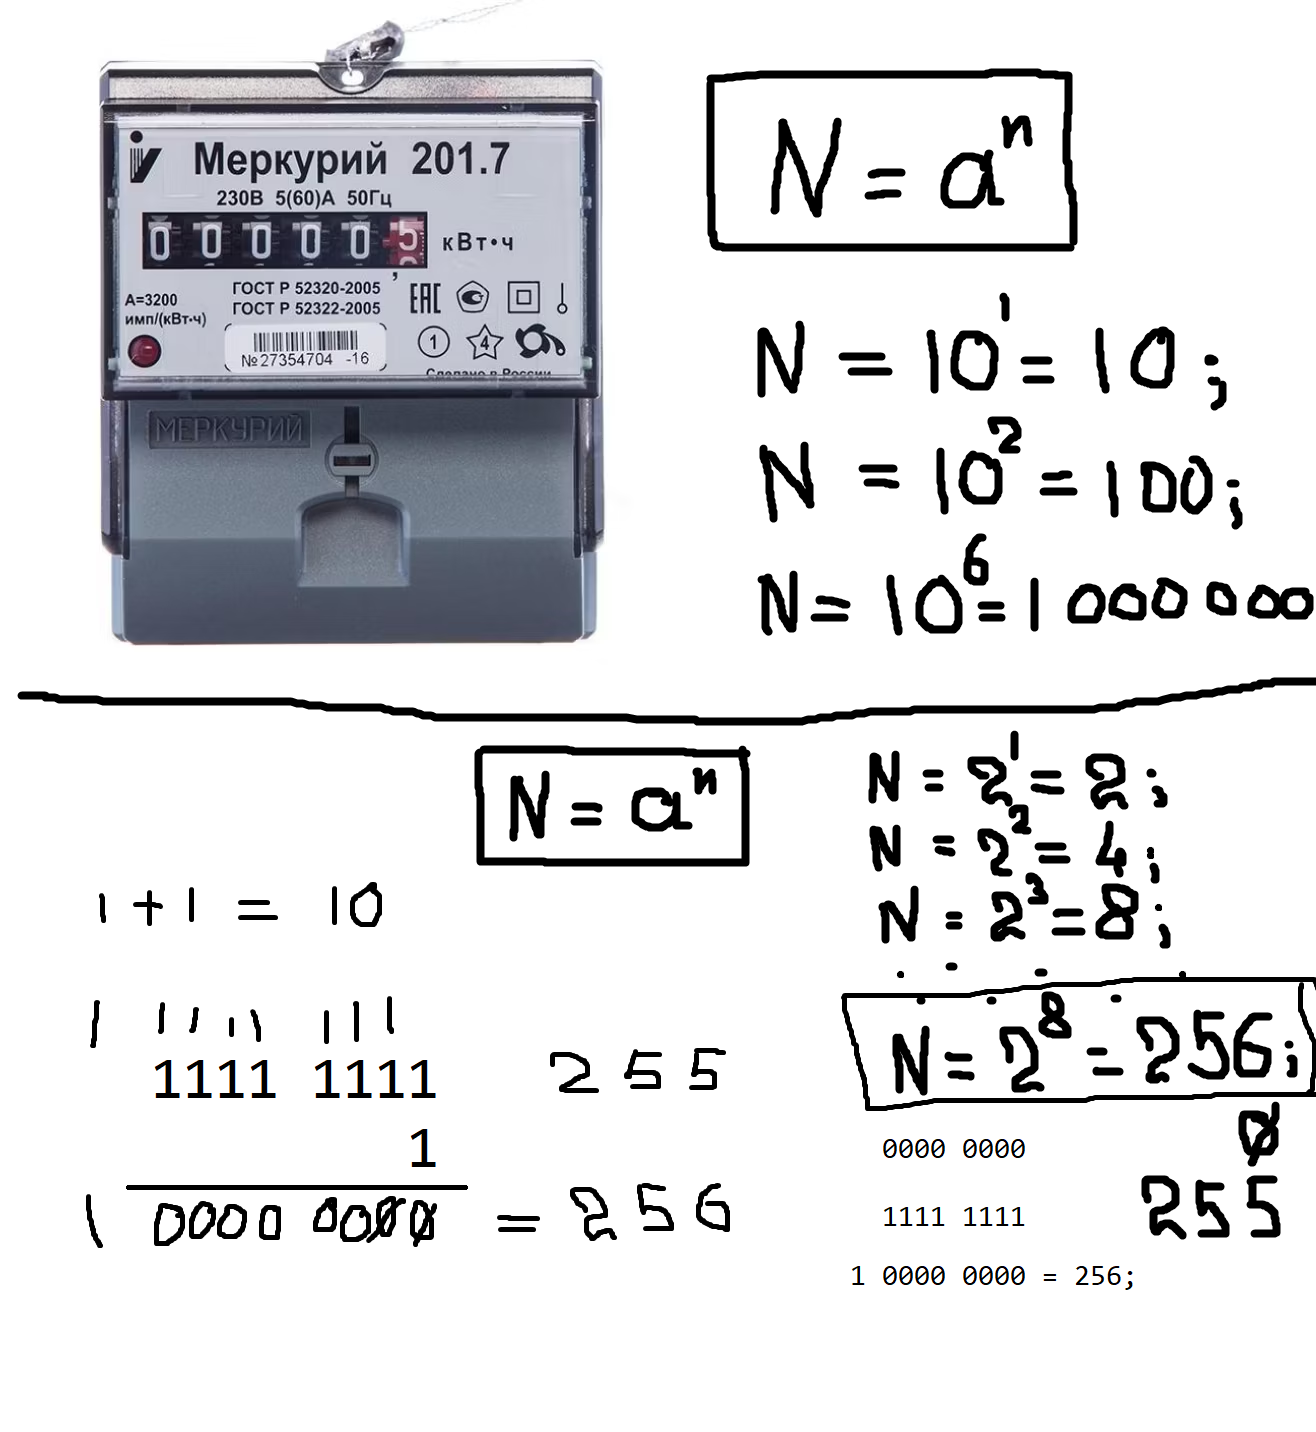 Меркурий 201.7
230В 5(60)А 50Гц
0 0 0 0 0 5 кВт•ч
,
ГОСТ Р 52320-2005
ГОСТ Р 52322-2005
А=3200
имп/(кВт·ч)
ЕАС
1 4
№27354704 -16
Сделано в России
МЕРКУРИЙ
N = aⁿ
N = 10¹ = 10 ;
N = 10² = 100;
N = 10⁶ = 1 000 000
N = aⁿ
N = 2¹ = 2 ;
N = 2² = 4 ;
N = 2³ = 8 ;
N = 2⁸ = 256;
1 + 1 = 10
1 1111 111
1111 1111 255
1
1 0000 0000 = 256
0000 0000 0
1111 1111 255
1 0000 0000 = 256;